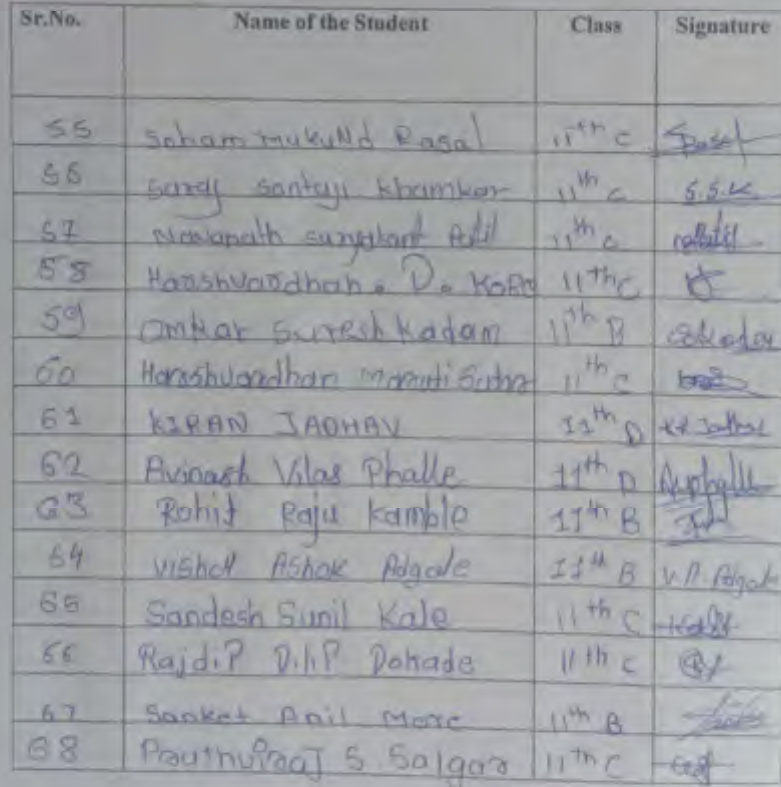 Sr.No. Name of the Student Class Signature
55 Soham mukuNd Rasal 11th C
56 Suraj santaji khamkar 11th C S.S.K
57 Navanath Patil 11th C
58 Harshvardhan. D. 11th C
59 Omkar Suresh kadam 11th B
60 Harshvardhan Maruti Sutar 11th C
61 KIRAN JADHAV 11th D
62 Avinash Vilas Phalle 11th D
63 Rohit Raju kamble 11th B
64 Vishal Ashok Adgale 11th B V.A. Adgale
65 Sandesh Sunil Kale 11th C
66 Rajdip Dilip Dohade 11th C
67 Sanket Anil More 11th B
68 Pruthviraj S. Salgar 11th C